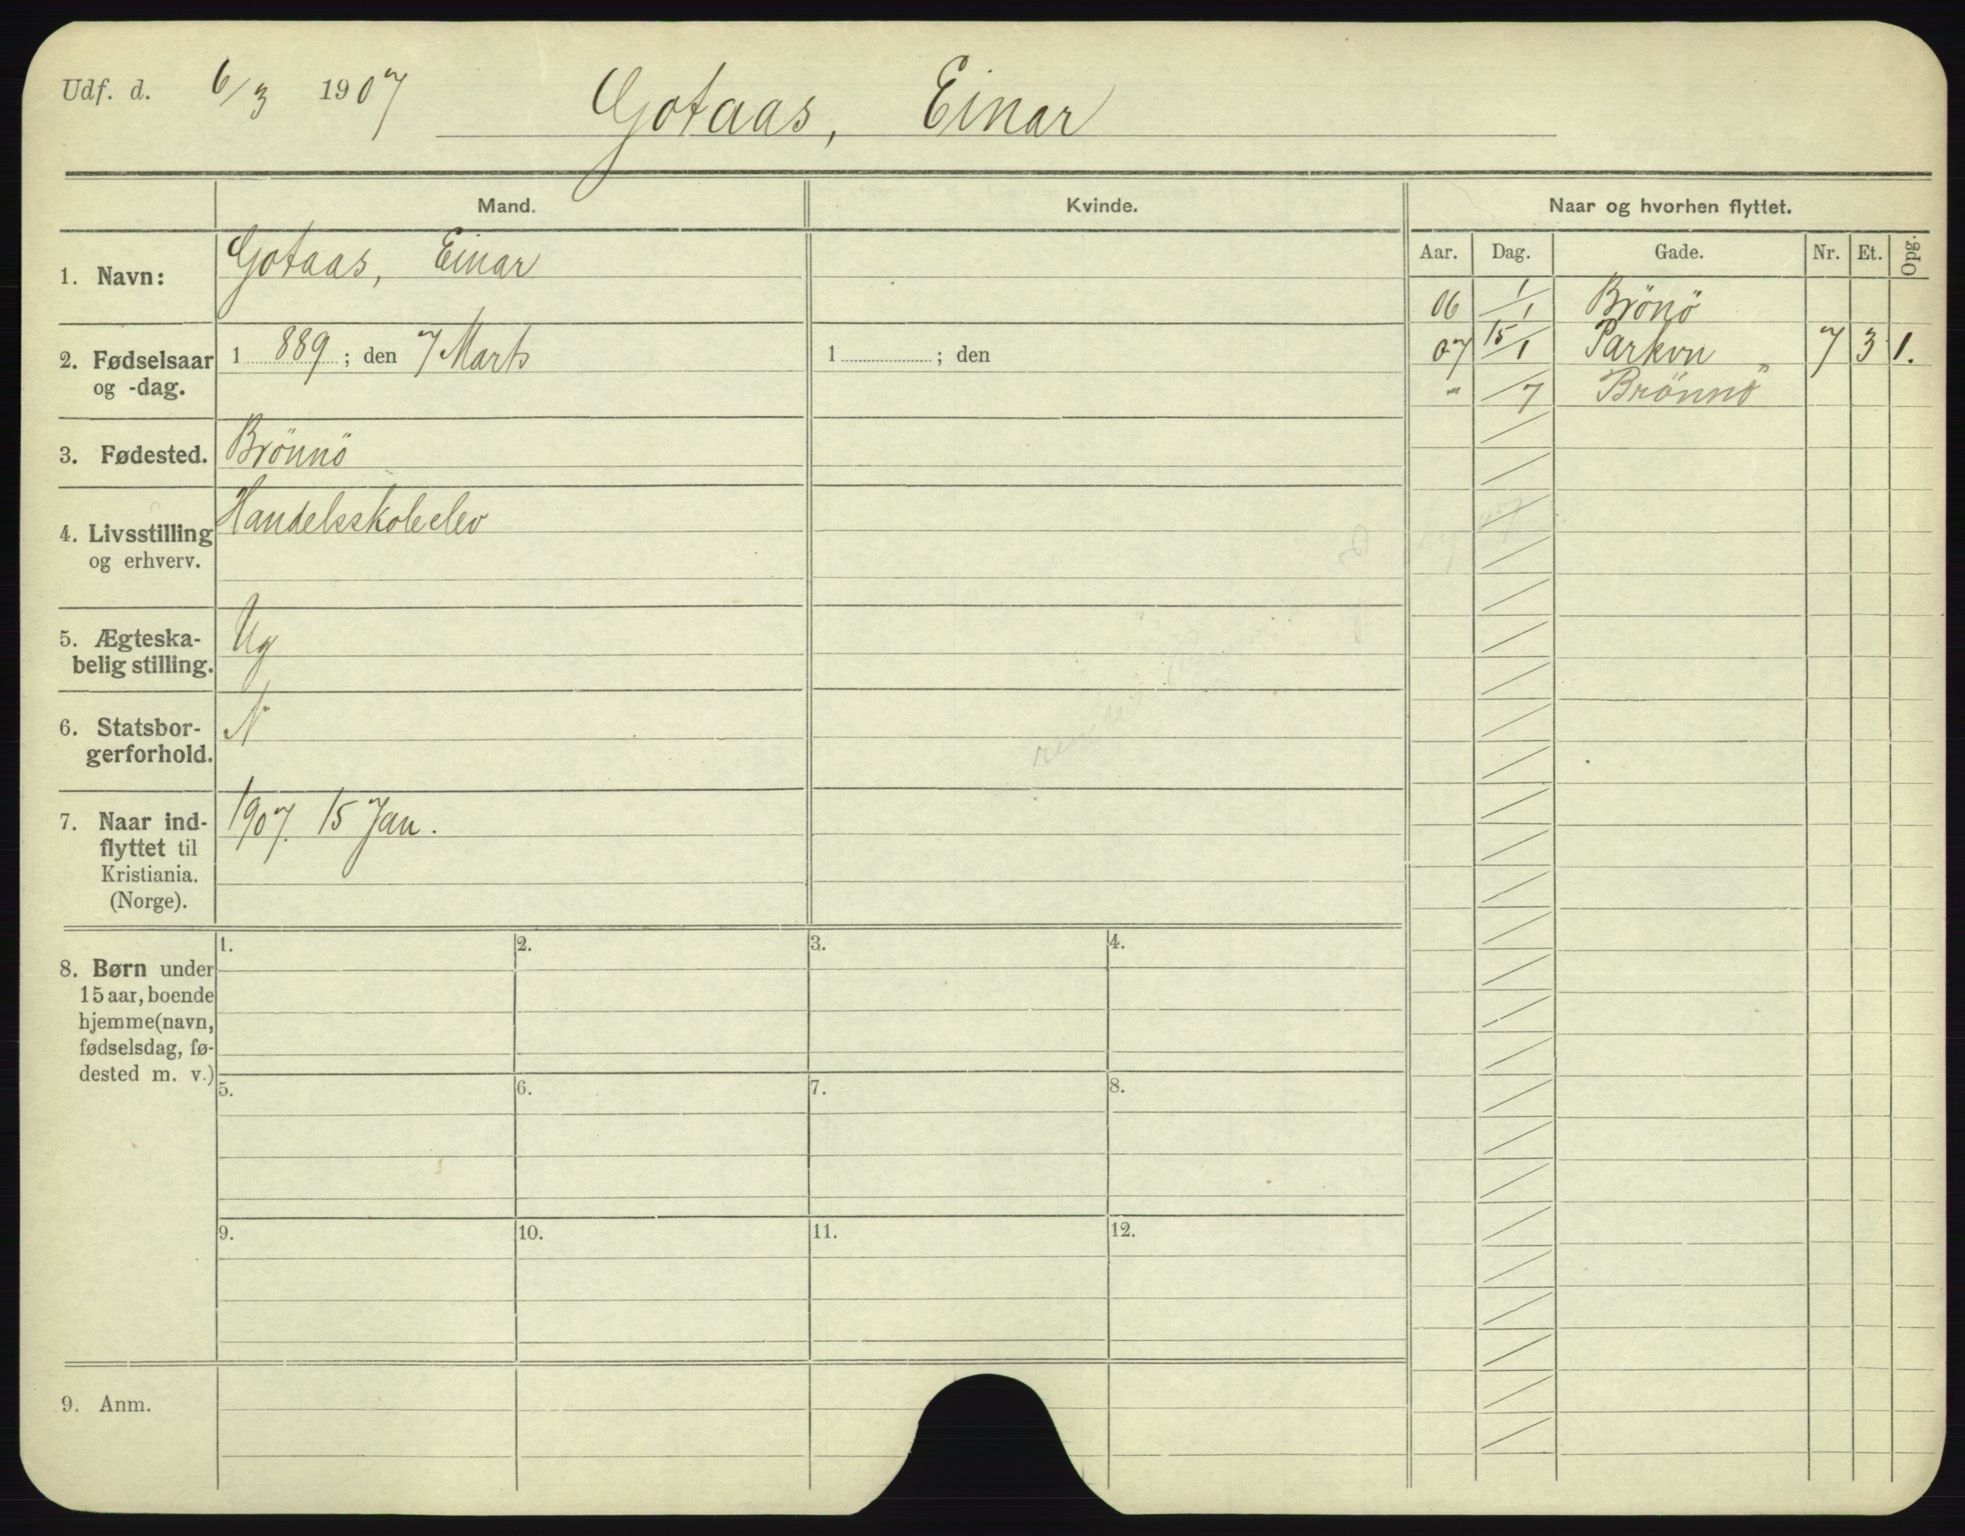 Udf. d. 6/3 1907 Gotaas, Einar
Mand. Kvinde. Naar og hvorhen flyttet.
Aar. Dag. Gade. Nr. Et. Opg.
1. Navn: Gotaas, Einar
06 1/1 Brönö
2. Fødselsaar og -dag. 1 889 ; den 7 Marts 1 ; den
07 15/1 Parkvn 7 3 1.
" /7 Brönnö
3. Fødested. Brönnö
4. Livsstilling og erhverv. Handelsskoleelev
5. Ægteska-
belig stilling. Ug
6. Statsbor-
gerforhold. N
7. Naar ind- 1907. 15 Jan.
flyttet til
Kristiania.
(Norge).
1. 2. 3. 4.
8. Børn under
15 aar, boende
hjemme (navn,
fødselsdag, fø-
dested m. v.)
5. 6. 7. 8.
9. 10. 11. 12.
9. Anm.